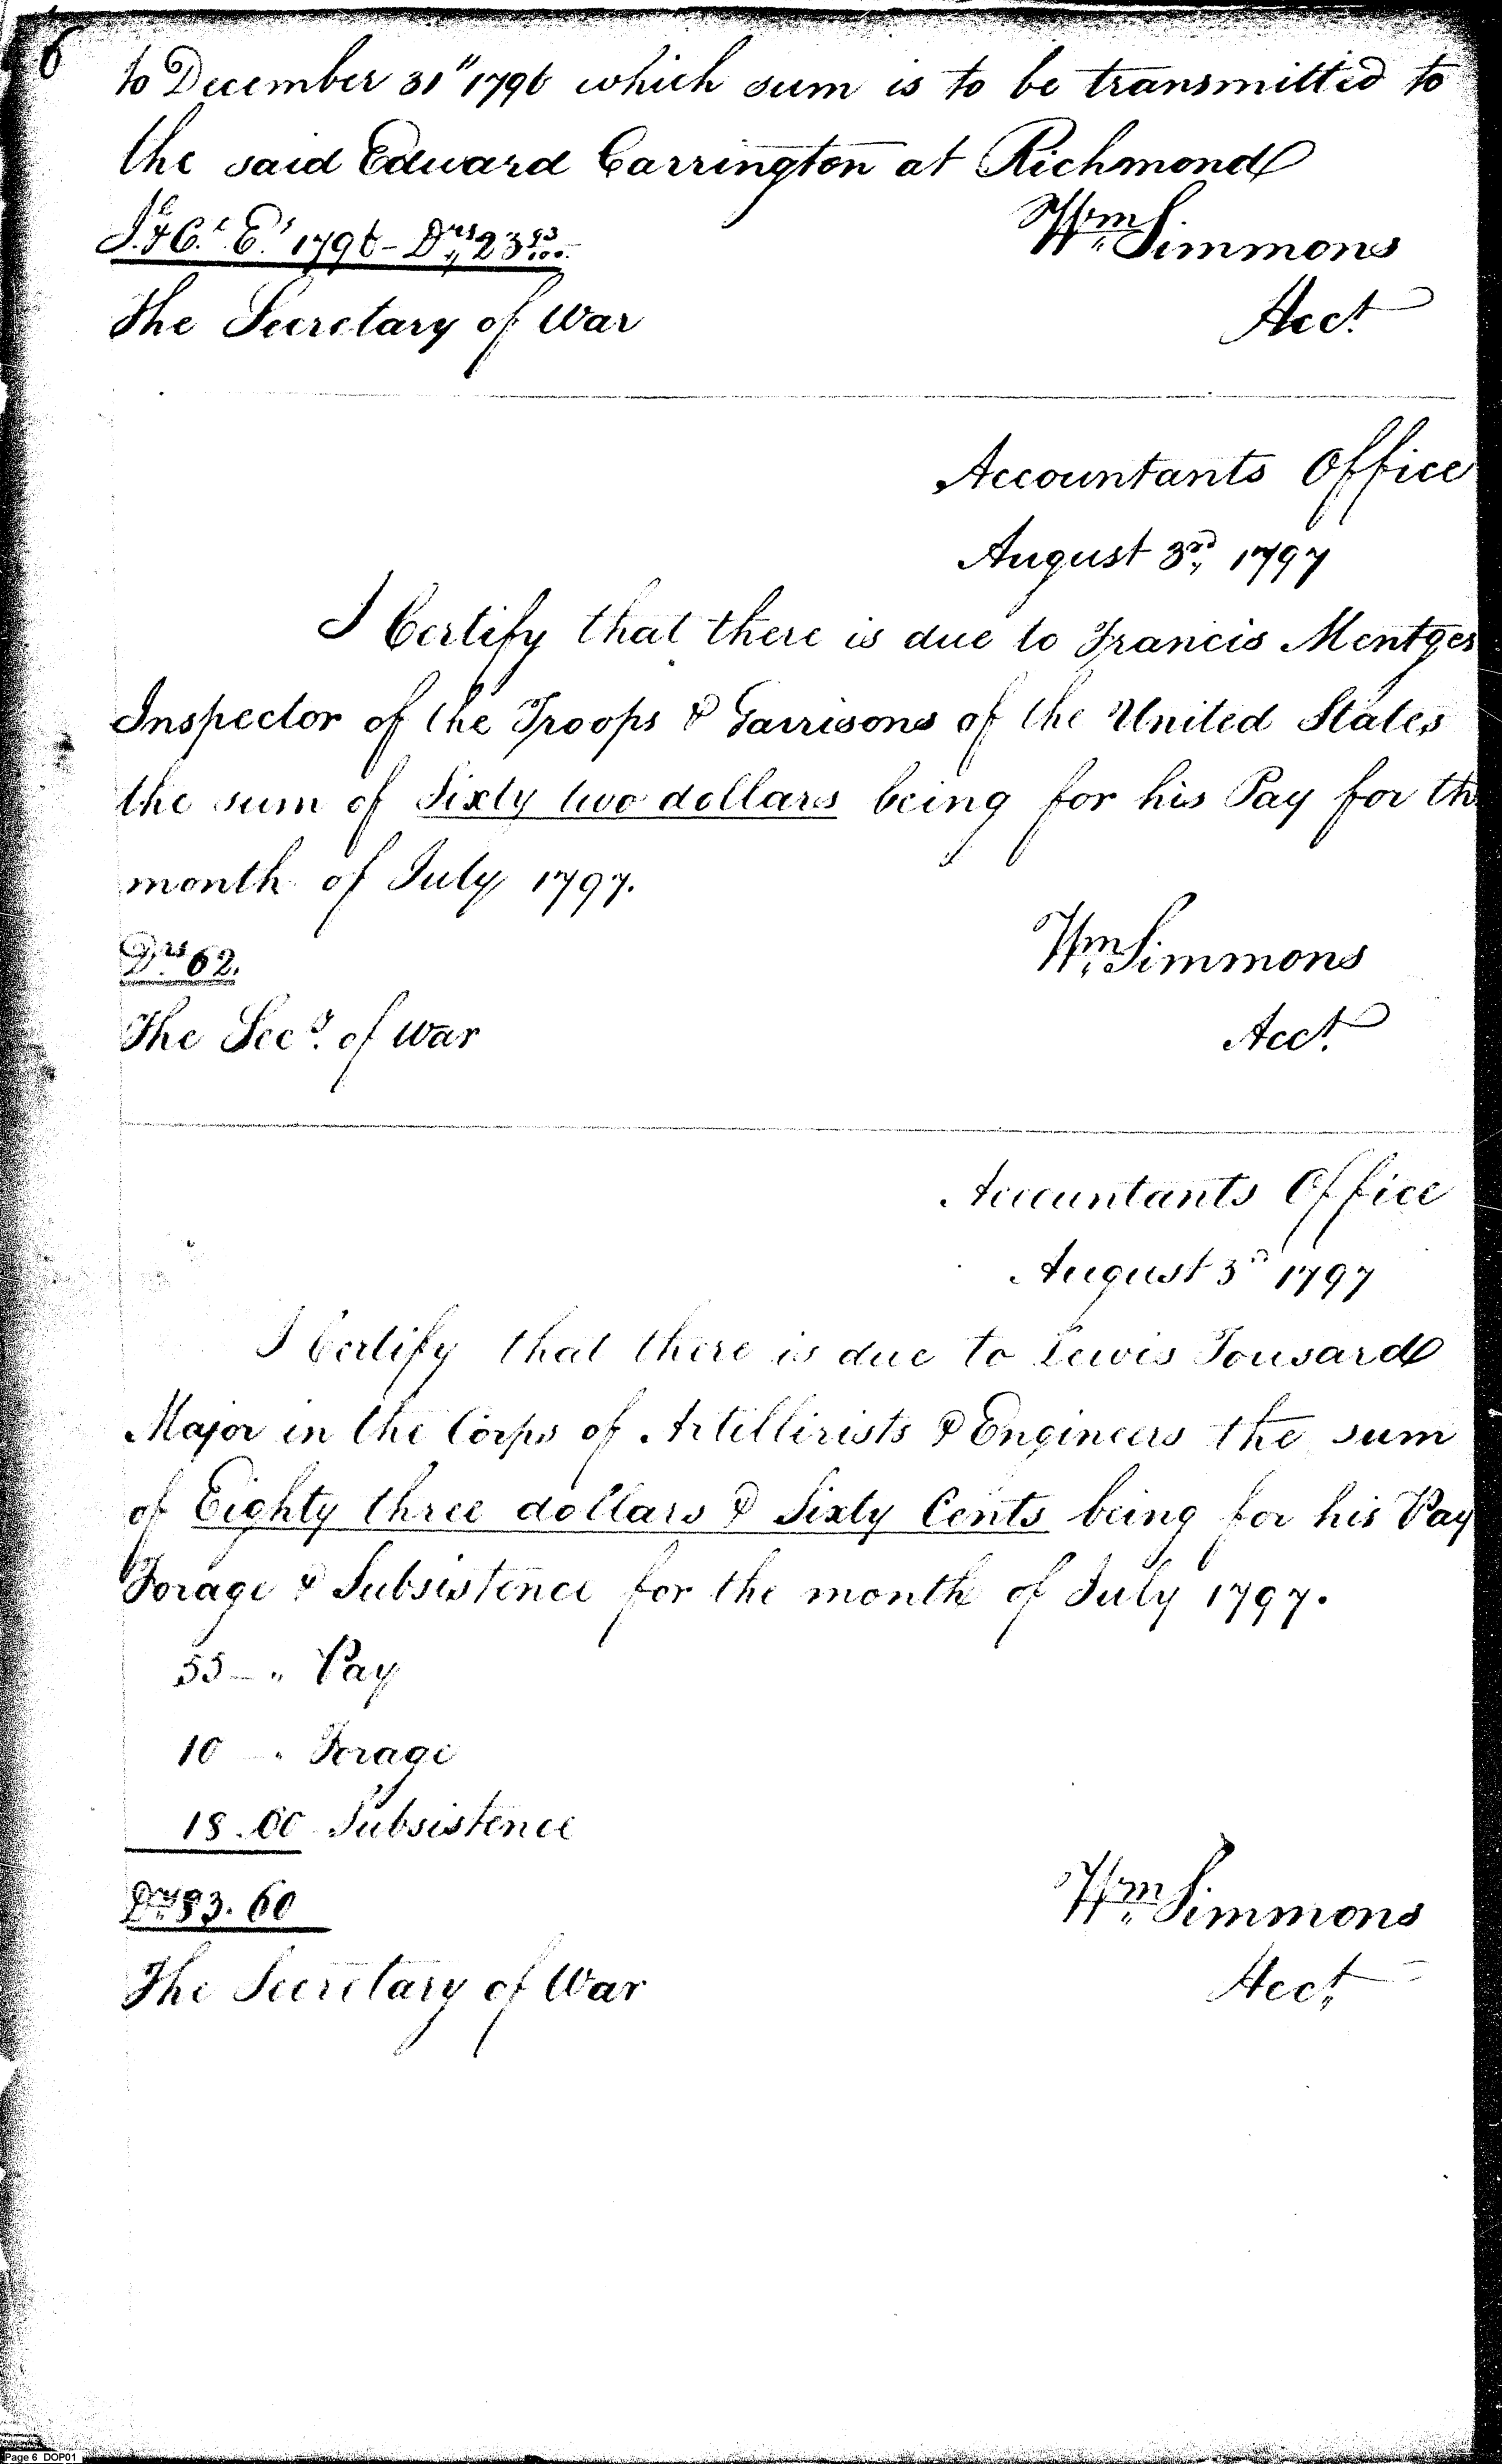 6
to December 31" 1796 which sum is to be transmitted to
the said Edward Carrington at Richmond
I. & C.t E.s 1796 - Drs 23 93/100
Wm Simmons
The Secretary of War
Acct.
Accountants Office
August 3rd, 1797
I Certify that there is due to Francis Mentges
Inspector of the Troops & Garrisons of the United States
the sum of Sixty two dollars being for his Pay for th
month of July 1797.
Drs 62.
Wm Simmons
The Secy. of War
Acct.
Accountants Office
August 3d 1797
I Certify that there is due to Lewis Tousard
Major in the Corps of Artillirists & Engineers the sum
of Eighty three dollars & Sixty Cents being for his Pay
Forage & Subsistence for the month of July 1797.
55 - " Pay
10 - " Forage
18.60 Subsistence
Drs 83.60
Wm Simmons
The Secretary of War
Acct.
Page 6 DOP01